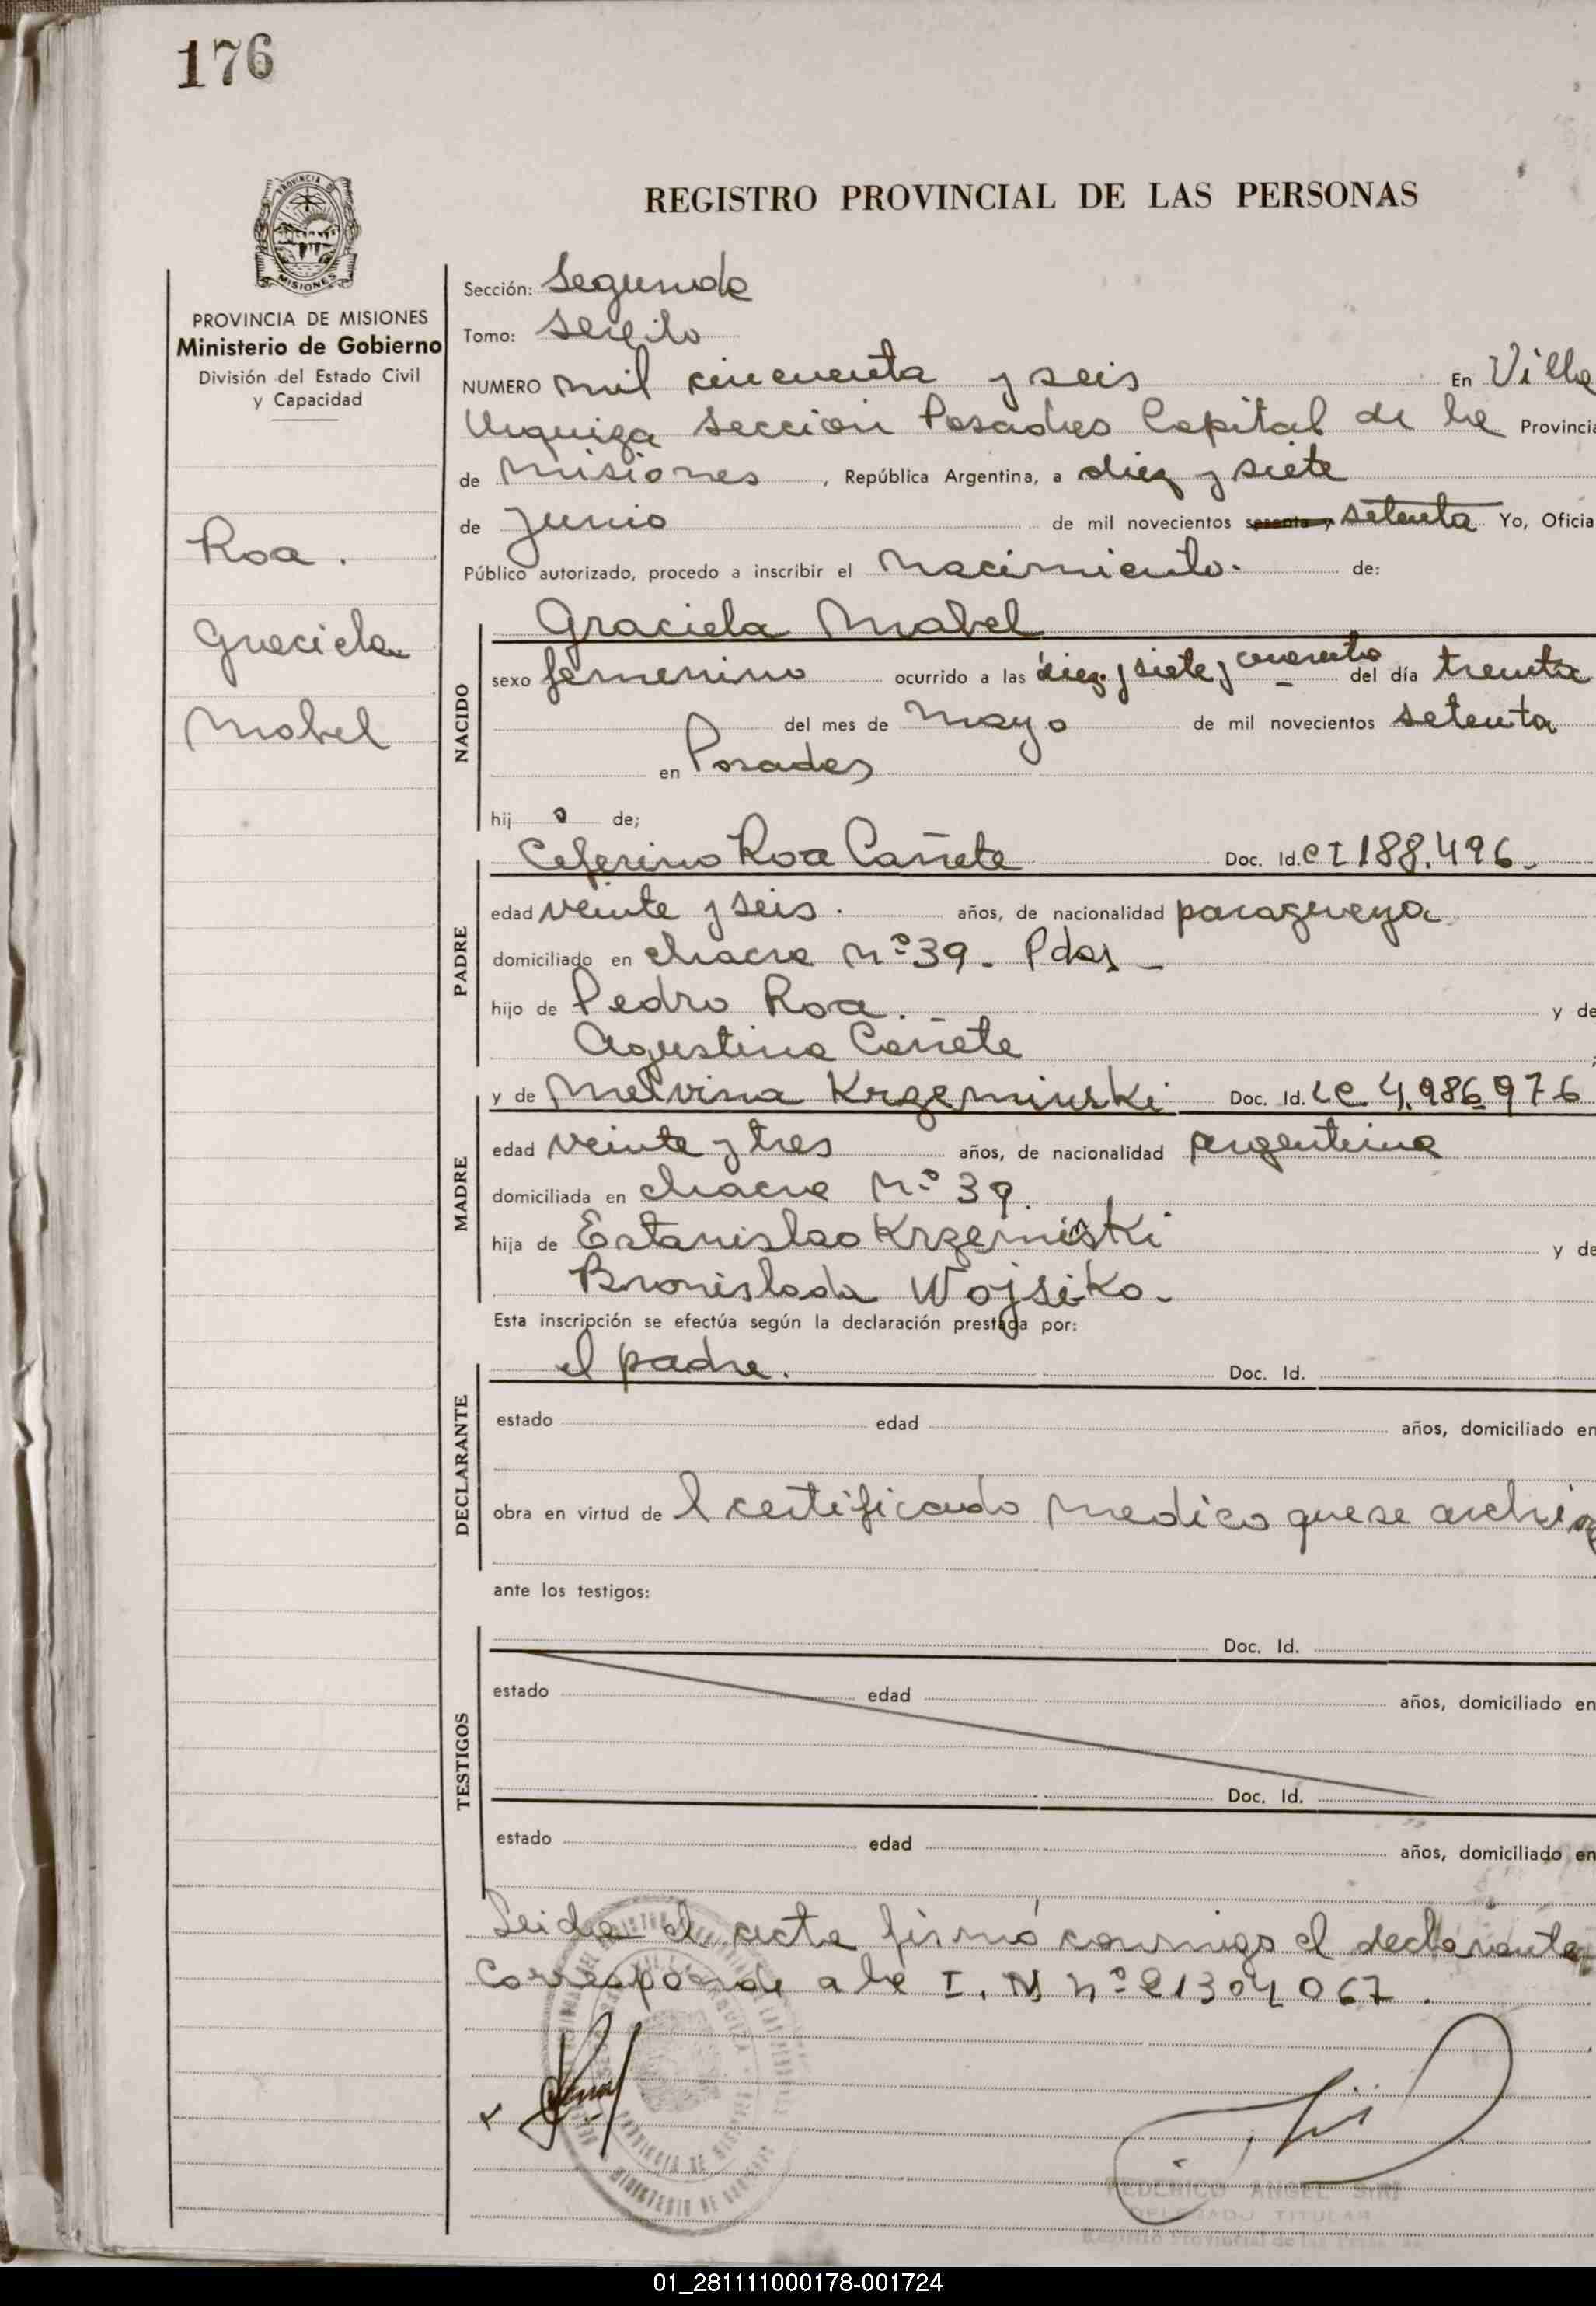 176
REGISTRO PROVINCIAL DE LAS PERSONAS
PROVINCIA DE MISIONES
Ministerio de Gobierno
División del Estado Civil
y Capacidad
Roa.
Graciela
Mabel
Sección: Segunda
Tomo: sexto
NUMERO mil cincuenta y seis En Villa
Urquiza sección Posadas Capital de la Provincia
de Misiones, República Argentina, a diez y siete
de Junio de mil novecientos sesenta y setenta Yo, Oficia
Público autorizado, procedo a inscribir el Nacimiento. de:
NACIDO
Graciela Mabel
sexo femenino ocurrido a las diez y siete y cuarenta del día treinta
del mes de Mayo de mil novecientos setenta
en Posadas
hij a de;
PADRE
Ceferino Roa Cañete Doc. Id. CI 188.496.
edad veinte y seis. años, de nacionalidad paragueya
domiciliado en chacra Nº 39. Pdas
hijo de Pedro Roa. y de
Agustina Cañete
MADRE
y de Melvina Krzeminski Doc. Id. LC 4.986.976
edad veinte y tres años, de nacionalidad argentina
domiciliada en chacra Nº 39.
hija de Estanislao Krzemiski y de
Bronislada Wojsiko.
Esta inscripción se efectúa según la declaración prestada por:
DECLARANTE
el padre. Doc. Id.
estado edad años, domiciliado en
obra en virtud de l certificado medico que se archiva
ante los testigos:
TESTIGOS
Doc. Id.
estado edad años, domiciliado en
Doc. Id.
estado edad años, domiciliado en
Leida el acta firmó conmigo el declarante
Corresponde a la I. N nº 21304067.
FEDERICO ANGEL SIRI
DELEGADO TITULAR
Registro Provincial de las
01_281111000178-001724